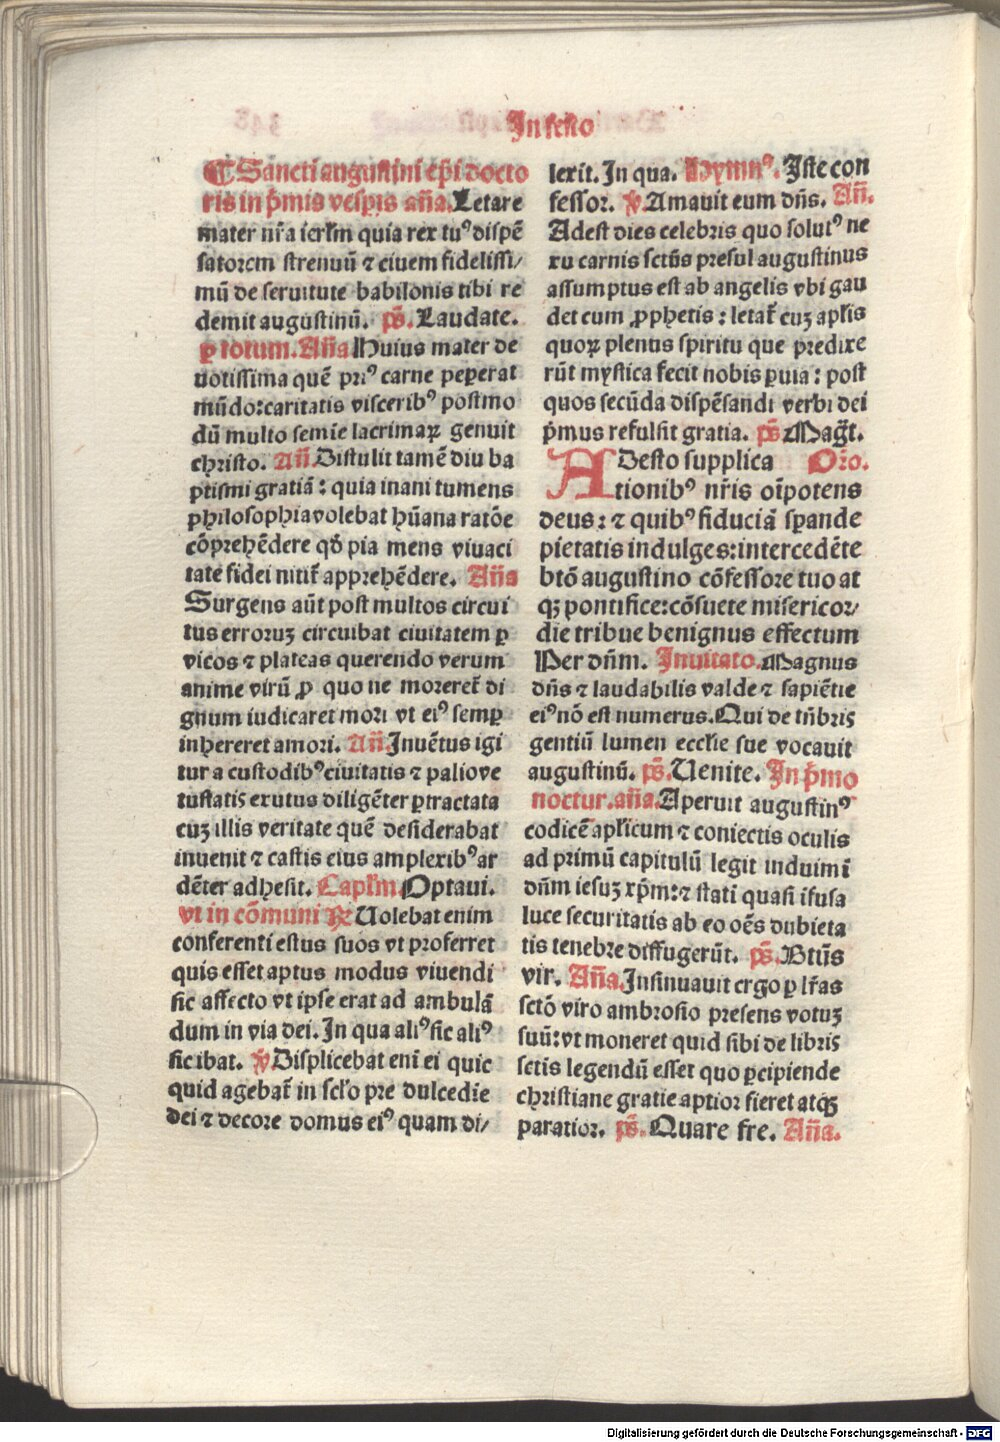 In festo
¶ Sancti augustini ep̄i docto
ris in p̄mis vesp̄is añа. Letare
mater nr̄a ierl̄m quia rex tu⁹ dispē
satorem strenuū ⁊ ciuem fidelissi⸗
mū de seruitute babilonis tibi re
demit augustinū. p̄s. Laudate.
ꝑ totum. Añа Huius mater de
uotissima quē pri⁹ carne peperat
mūdo: caritatis viscerib⁹ postmo
dū multo semīe lacrimaꝝ genuit
christo. Añ. Distulit tamē diu ba
ptismi gratiā: quia inani tumens
philosophia volebat hūana ratōe
cōprehēdere qd̄ pia mens viuaci
tate fidei nitit᷑ apprehēdere. Añа
Surgens aūt post multos circui
tus erroruʒ circuibat ciuitatem ꝑ
vicos ⁊ plateas querendo verum
anime virū ꝓ quo ne moreret᷑ di
gnum iudicaret mori vt ei⁹ semꝑ
inhereret amori. Añ. Inuētus igi
tur a custodib⁹ ciuitatis ⁊ paliove
tustatis exutus diligēter ꝑtractata
cuʒ illis veritate quē desiderabat
inuenit ⁊ castis eius amplexib⁹ ar
dēter adhesit. Capl̄m. Optaui.
vt in cōmuni ℟ Uolebat enim
conferenti estus suos vt proferret
quis esset aptus modus viuendi
sic affecto vt ipse erat ad ambulā
dum in via dei. In qua ali⁹ sic ali⁹
sic ibat. ℣ Displicebat eni ei quic
quid agebat᷑ in scl̄o pre dulcedīe
dei ⁊ decore domus ei⁹ quam di⸗
lexit. In qua. Hymn⁹. Iste con
fessor. ℣ Amauit eum dn̄s. Añ.
Adest dies celebris quo solut⁹ ne
xu carnis sctūs presul augustinus
assumptus est ab angelis vbi gau
det cum ꝓphetis: letat᷑ cuʒ apl̄is
quoꝝ plenus spiritu que predixe
rūt mystica fecit nobis ꝑuia: post
quos secūda dispēsandi verbi dei
p̄mus refulsit gratia. p̄s. Magt̄.
Adesto supplica Oro.
tionib⁹ nr̄is oīpotens
deus: ⁊ quib⁹ fiduciā sꝑande
pietatis indulges: intercedēte
btō augustino cōfessore tuo at
qʒ pontifice: cōsuete misericor⸗
die tribue benignus effectum
Per dn̄m. Inuitato. Magnus
dn̄s ⁊ laudabilis valde ⁊ sapiētie
ei⁹ nō est numerus. Qui de tn̄bris
gentiū lumen eccl̄ie sue vocauit
augustinū. p̄s. Uenite. In p̄mo
noctur. aña. Aperuit augustin⁹
codicē apl̄icum ⁊ coniectis oculis
ad primū capitulū legit induimī
dn̄m iesuʒ xp̄m: ⁊ stati quasi ifusa
luce securitatis ab eo oēs dubieta
tis tenebre diffugerūt. p̄s. Btūs
vir. Aña. Insinuauit ergo ꝑ lr̄as
sctō viro ambrosio presens votuʒ
suū: vt moneret quid sibi de libris
sctis legendū esset quo ꝑcipiende
christiane gratie aptior fieret atqʒ
paratior. p̄s. Quare fre. Aña.
Digitalisierung gefördert durch die Deutsche Forschungsgemeinschaft - DFG